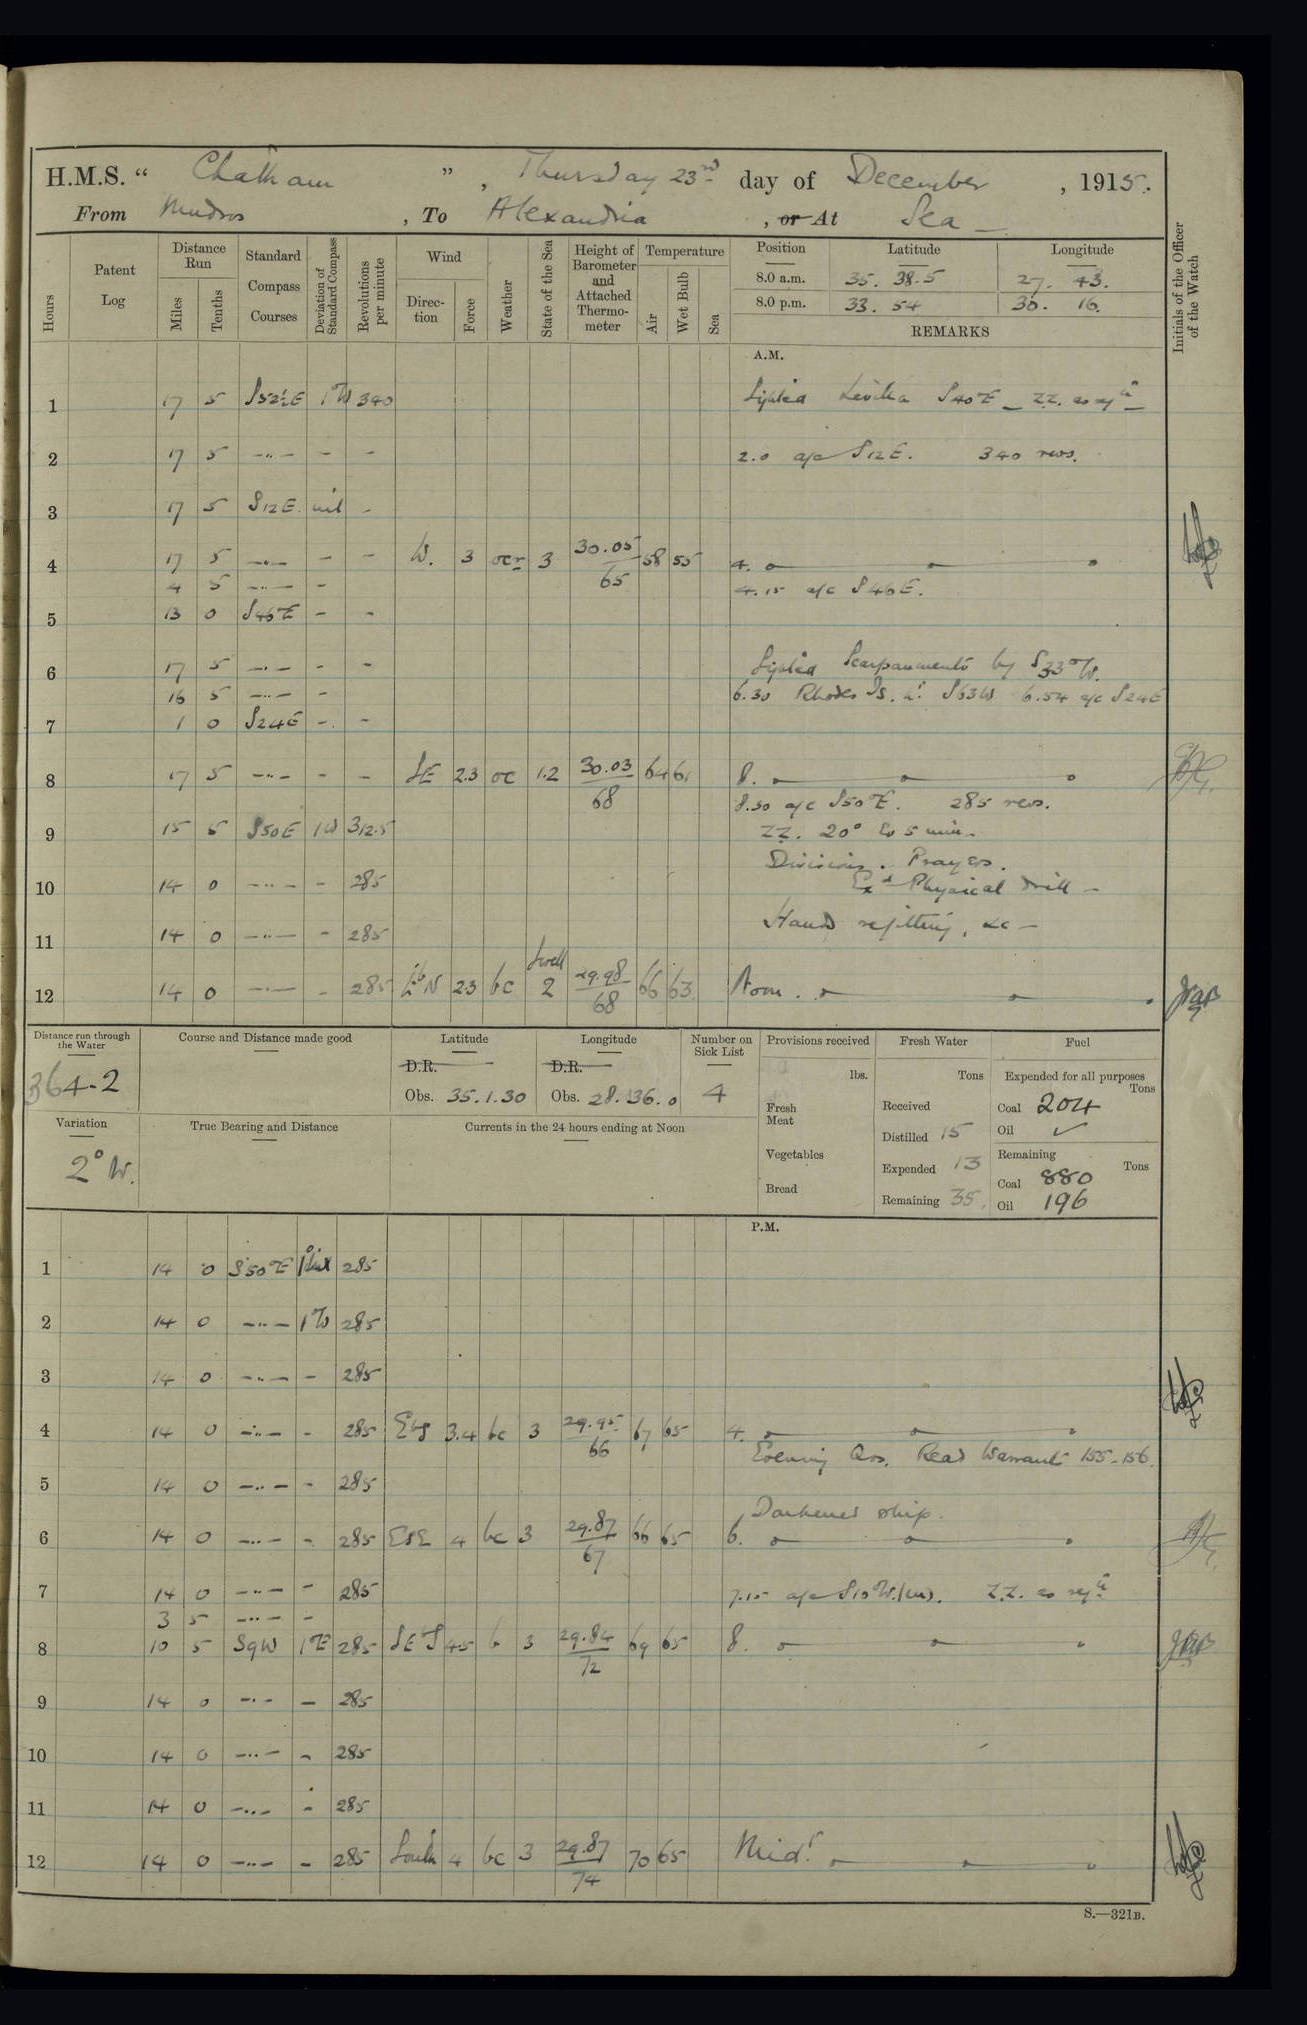 H.M.S. “ Chatham ” , Thursday 23rd day of December , 1915.
From Mudros , To Alexandria , or At Sea
Hours
Patent Log
Distance Run
Miles
Tenths
Standard Compass Courses
Deviation of Standard Compass
Revolutions per minute
Wind
Direction
Force
Weather
State of the Sea
Height of Barometer and Attached Thermometer
Temperature
Air
Wet Bulb
Sea
Position Latitude Longitude
8.0 a.m. 35. 38.5 27. 43.
8.0 p.m. 33. 54 30. 16.
REMARKS
Initials of the Officer of the Watch
A.M.
1 17 5 S52½E 1°W 340 Sighted Levitha S40°E – ZZ. as reqd
2 17 5 —..— – – 2.0 a/c S12E. 340 revs.
3 17 5 S12E nil –
4 17 5 —..— – – W. 3 ocr 3 30.05 58 55 4.
65
4 5 —..— – 4.15 a/c S46E.
5 13 0 S46°E – –
6 17 5 —..— – – Sighted Scarpanmento by S33°W.
16 5 —..— – 6.30 Rhodes Is. Lt S63W 6.54 a/c S24E
7 1 0 S24E – –
8 17 5 —..— – – SE 2.3 oc 1.2 30.03 64 61 8.
68
8.30 a/c S50°E. 285 revs.
9 15 5 S50E 1W 312.5 ZZ. 20° Ev 5 min.
Divisions. Prayers.
10 14 0 —..— – 285 Exd Physical drill –
11 14 0 —..— – 285 Hands refitting, &c –
Swell
12 14 0 —..— – 285 EbN 2.3 bc 2 29.98 66 63 Noon.
68
Distance run through the Water
364.2
Course and Distance made good
Latitude
D.R.
Obs. 35.1.30
Longitude
D.R.
Obs. 28.36.0
Number on Sick List
4
Provisions received
lbs.
Fresh Meat
Vegetables
Bread
Fresh Water
Tons
Received
Distilled 15
Expended 13
Remaining 35.
Fuel
Expended for all purposes
Tons
Coal 204
Oil ✓
Remaining
Tons
Coal 880
Oil 196
Variation
2° W.
True Bearing and Distance
Currents in the 24 hours ending at Noon
P.M.
1 14 0 S50°E 285
2 14 0 —..— 1°W 285
3 14 0 —..— – 285
4 14 0 —..— – 285 EbS 3.4 bc 3 29.95 67 65 4.
66
Evening Qrs. Read Warrants 155-156.
5 14 0 —..— – 285
Darkened ship.
6 14 0 —..— – 285 ESE 4 bc 3 29.87 66 65 6.
67
7 14 0 —..— – 285 7.15 a/c S10°W. ZZ. as reqd
3 5 —..— –
8 10 5 S9W 1°E 285 SEbS 4.5 b 3 29.84 69 65 8.
72
9 14 0 —..— – 285
10 14 0 —..— – 285
11 14 0 —..— – 285
12 14 0 —..— – 285 South 4 bc 3 29.87 70 65 Midt
74
S.—321B.